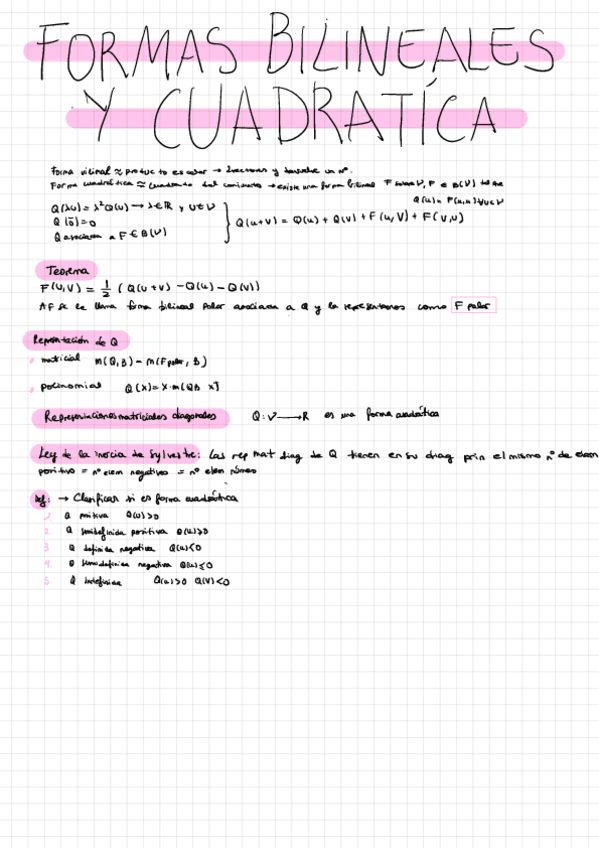 FORMAS BILINEALES
Y CUADRATÍCA
Forma vilinal ≈ producto escalar → 2 vectores y devuelve un nº.
Forma cuadrática ≈ cuadrado del → existe una forma bilineal F sobre V, F ∈ B(V) tq
Q(u) = F(u,u) ∀u∈V
Q(λu) = λ²Q(u) → λ∈R y u∈V
Q(0) = 0
Q asociada a F ∈ B(V)
Q(u+v) = Q(u) + Q(v) + F(u,v) + F(v,u)
Teorema
F(u,v) = 1/2 (Q(u+v) - Q(u) - Q(v))
A F se le llama forma bilineal polar asociada a Q y la representamos como F polar
Representación de Q
matricial m(Q,B) = m(F polar, B)
polinomial Q(x) = x·m(QB xT
Representaciones matriciales diagonales Q: V → R es una forma cuadrática
Ley de la inercia de Sylvestre: Las rep mat diag de Q tienen en su diag prin el mismo nº de elem
positivo = nº elem negativos = nº elem
Def: → Clasificar si es forma cuadrática
1. Q positiva Q(u)>0
2. Q semidefinida positiva Q(u)≥0
3. Q definida negativa Q(u)<0
4. Q semidefinida negativa Q(u)≤0
5. Q indefinida Q(u)>0 Q(v)<0